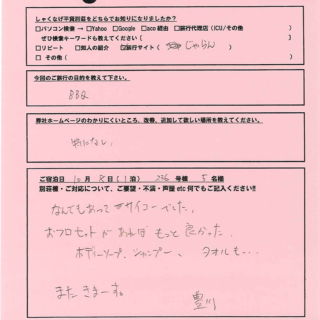 しゃくなげ平貸別荘をどちらでお知りになりましたか?
□パソコン検索 → □Yahoo □Google □aco経由 □旅行代理店(ICU/その他 )
ぜひ検索キーワードも教えてください( )
□リピート □知人の紹介 ☑旅行サイト( じゃらん )
□その他( )
今回のご旅行の目的を教えて下さい。
BBQ
弊社ホームページのわかりにくいところ、改善、追加して欲しい場所を教えてください。
特になし。
ご宿泊日 10月 8日(1泊) 236号棟 5名様
別荘種・ご対応について、ご要望・不満・芦屋 etc 何でもご記入ください!!
なんでもあってサイコーでした。
おフロセットがあればもっと良かった。
ボディーソープ、シャンプー、タオルも…
またきまーす。
豊川